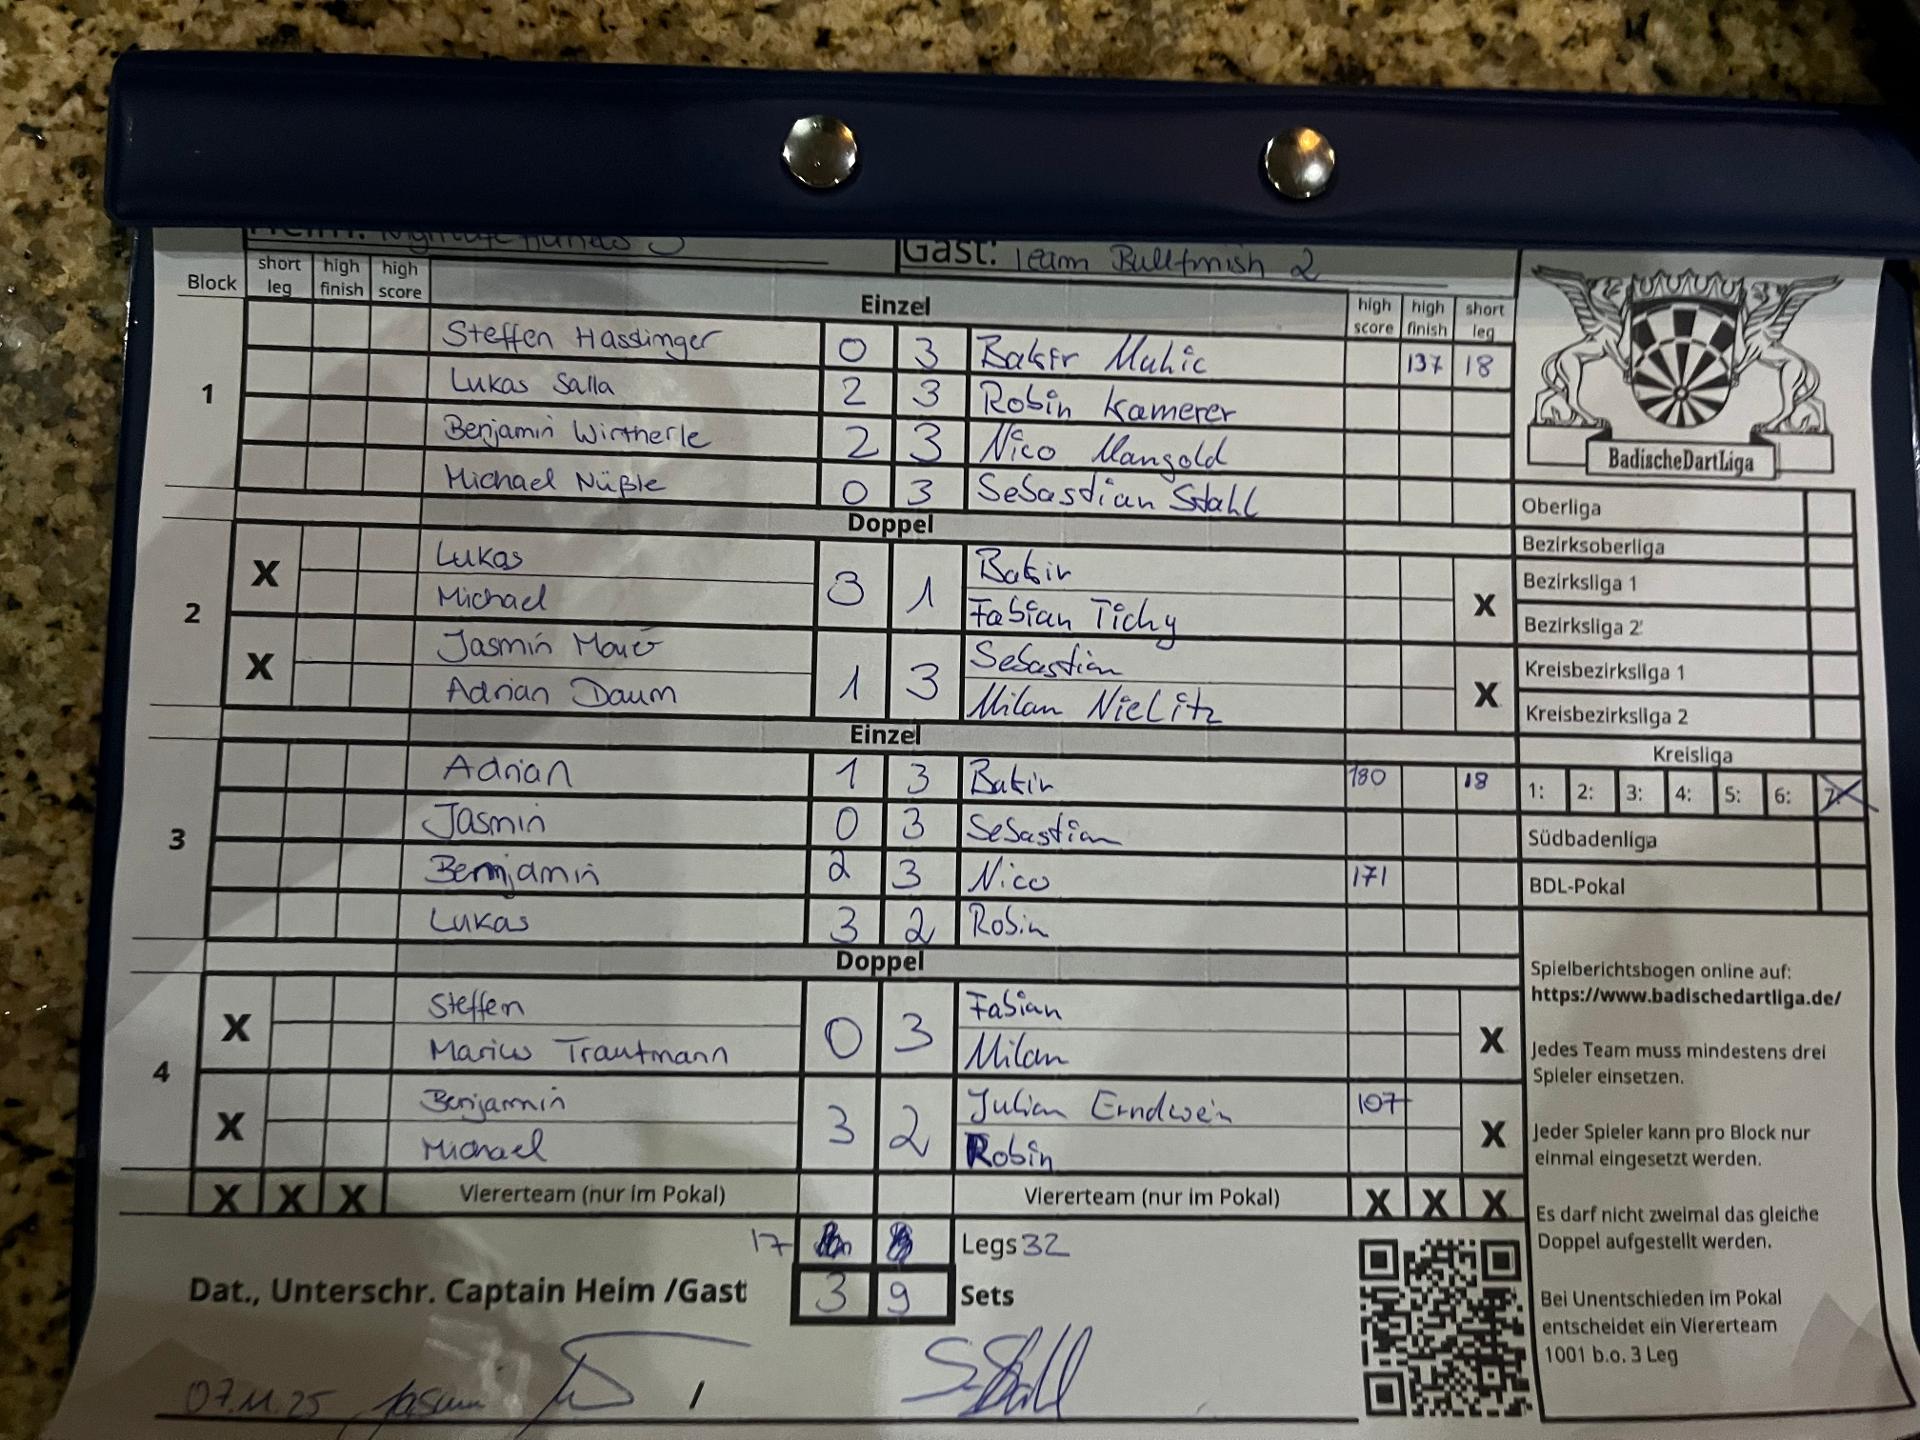 Heim: 3 Gast: Team Bullfinish 2
Block short leg high finish high score Einzel high score high finish short leg
1
Steffen Hasslinger 0 3 Bakir Muhic 137 18
Lukas Salla 2 3 Robin Kamerer
Benjamin Wirtherle 2 3 Nico Mangold
Michael Nüßle 0 3 Sebastian Stahl
Doppel
2
X Lukas 3 1 Bakir X
Michael Fabian Tichy
X Jasmin 1 3 Sebastian X
Adrian Daum Milan Nielitz
Einzel
3
Adrian 1 3 Bakir 180 18
Jasmin 0 3 Sebastian
Benjamin 2 3 Nico 171
Lukas 3 2 Robin
Doppel
4
X Steffen 0 3 Fabian X
Marius Trautmann Milan
X Benjamin 3 2 Julian Erndwein 107 X
Michael Robin
X X X Viererteam (nur im Pokal) Viererteam (nur im Pokal) X X X
17 Legs 32
Dat., Unterschr. Captain Heim /Gast 3 9 Sets
07.11.25 Jasmin /
BadischeDartLiga
Oberliga
Bezirksoberliga
Bezirksliga 1
Bezirksliga 2
Kreisbezirksliga 1
Kreisbezirksliga 2
Kreisliga
1: 2: 3: 4: 5: 6: 7:
Südbadenliga
BDL-Pokal
Spielberichtsbogen online auf:
https://www.badischedartliga.de/
Jedes Team muss mindestens drei
Spieler einsetzen.
Jeder Spieler kann pro Block nur
einmal eingesetzt werden.
Es darf nicht zweimal das gleiche
Doppel aufgestellt werden.
Bei Unentschieden im Pokal
entscheidet ein Viererteam
1001 b.o. 3 Leg